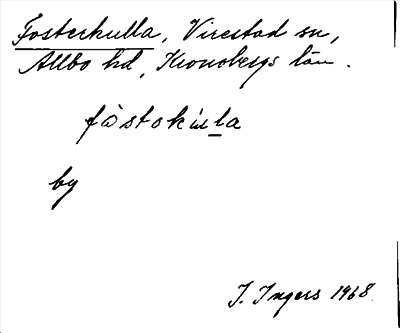 Fosterkulla, Virestad sn,
Allbo hd, Kronobergs län.
fòstokúla
by
I. Ingers 1968.